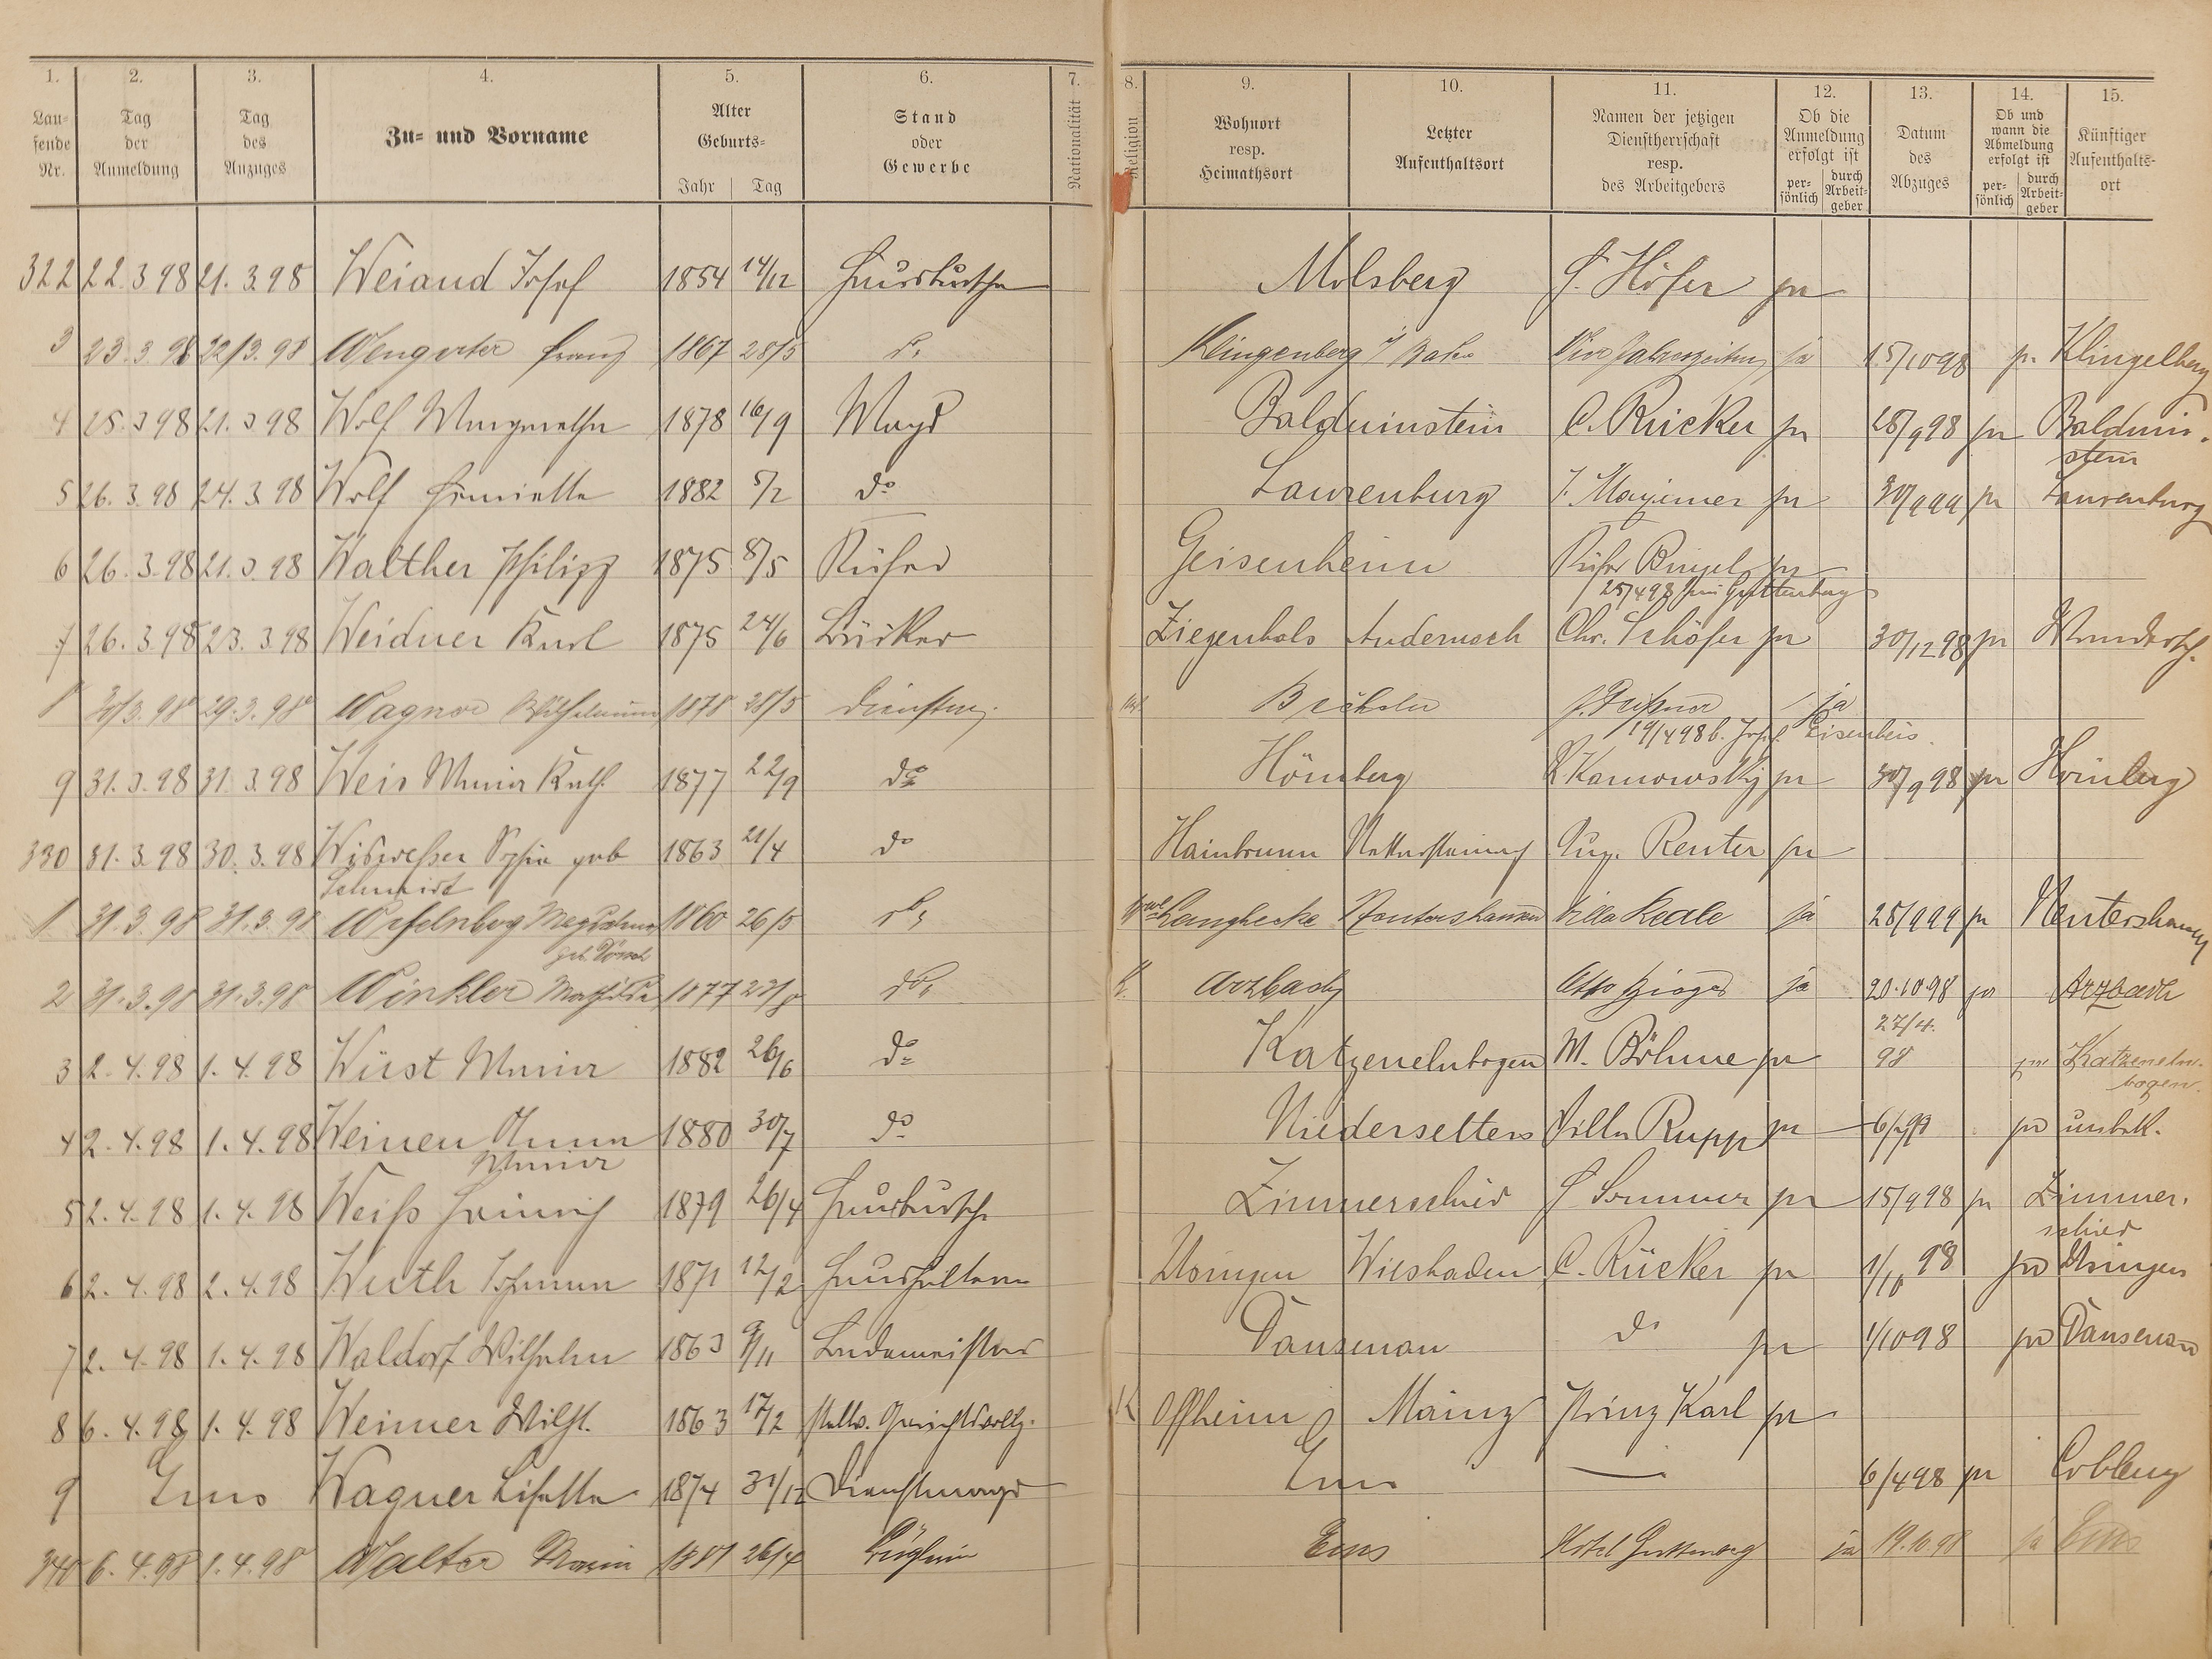 1. 2. 3. 4. 5. 6. 7. 8. 9. 10. 11. 12. 13. 14. 15.
Lau-
fende
Nr.
Tag
der
Anmeldung
Tag
des
Anzuges
Zu- und Vorname
Alter
Geburts-
Jahr Tag
Stand
oder
Gewerbe
Nationalität
Religion
Wohnort
resp.
Heimathsort
Letzter
Aufenthaltsort
Namen der jetzigen
Dienstherrschaft
resp.
des Arbeitgebers
Ob die
Anmeldung
erfolgt ist
per-
sönlich
durch
Arbeit-
geber
Datum
des
Abzuges
Ob und
wann die
Abmeldung
erfolgt ist
per-
sönlich
durch
Arbeit-
geber
Künftiger
Aufenthalts-
ort
322 22.3.98 21.3.98 Weiand Josef 1854 14/12 Hausbursche Molsberg Höfer
3 23.3.98 22/3.98 Wengerter Franz 1867 28/5 do Klingenberg Vier Jahreszeiten ja 15/10 98 Klingelberg
4 25.3.98 21.3.98 Wolf Margarethe 1878 16/9 Magd Balduinstein C. Rücker 28/9 98 Balduin-
stein
5 26.3.98 24.3.98 Wolf Henriette 1882 5/2 do Laurenburg 30/9 99 Laurenburg
6 26.3.98 21.3.98 Walther Philipp 1875 8/5 Küfer Geisenheim Küfer Bingel
25/4 98 Guttenberg
7 26.3.98 23.3.98 Weidner Karl 1875 24/6 Bäcker Ziegenhals Andernach Chr. Schöfer 30/12 98 Wandersch.
8 29.3.98 Wagner Wilhelmine 1878 28/5 ja
19/4 98 b. Josef Eisenbeis
9 31.3.98 31.3.98 Weis Maria Kath. 1877 22/9 do Hömberg Karnowsky 30/9 98 Hömberg
330 31.3.98 30.3.98 Wisweßer Sofie geb 1863 21/4 do Hainbrunn Aug. Reuter
Schmidt
1 31.3.98 31.3.98 Magdalena 1860 26/5 do Langhecke Nentershausen Villa ja 28/9 99 Nentershausen
2 31.3.98 31.3.98 Winkler Mathilde 1877 do K. Arzbach Otto ja 20.10.98 Arzbach
3 2.4.98 1.4.98 Wüst Maria 1882 26/6 do Katzenelnbogen M. Böhme 27/4.
98 Katzeneln-
bogen
4 2.4.98 1.4.98 Weinen Anna 1880 30/7 do Niederselters Villa Rupp unbek.
Maria
5 2.4.98 1.4.98 Weiß Heinrich 1879 26/4 Hausbursche Zimmerschied Sommer 15/9 98 Zimmer-
schied
6 2.4.98 2.4.98 Wuth Johann 1871 12/2 Usingen Wiesbaden C. Rücker 1/10 98 Usingen
7 2.4.98 1.4.98 Waldorf Wilhelm 1863 9/11 Bademeister Dausenau do 1/10 98 Dausenau
8 6.4.98 1.4.98 Weimer Wilh. 1863 17/2 stellv. Gerichtsvollz. K Offheim Mainz Prinz Karl
9 Ems Wagner Lisette 1874 31/12 Dienstmagd Ems — 6/4 98 Coblenz
340 6.4.98 1.4.98 Walter Maria 1881 26/4 Büglerin Ems Hotel Guttenberg ja 19.10.98 ja Ems